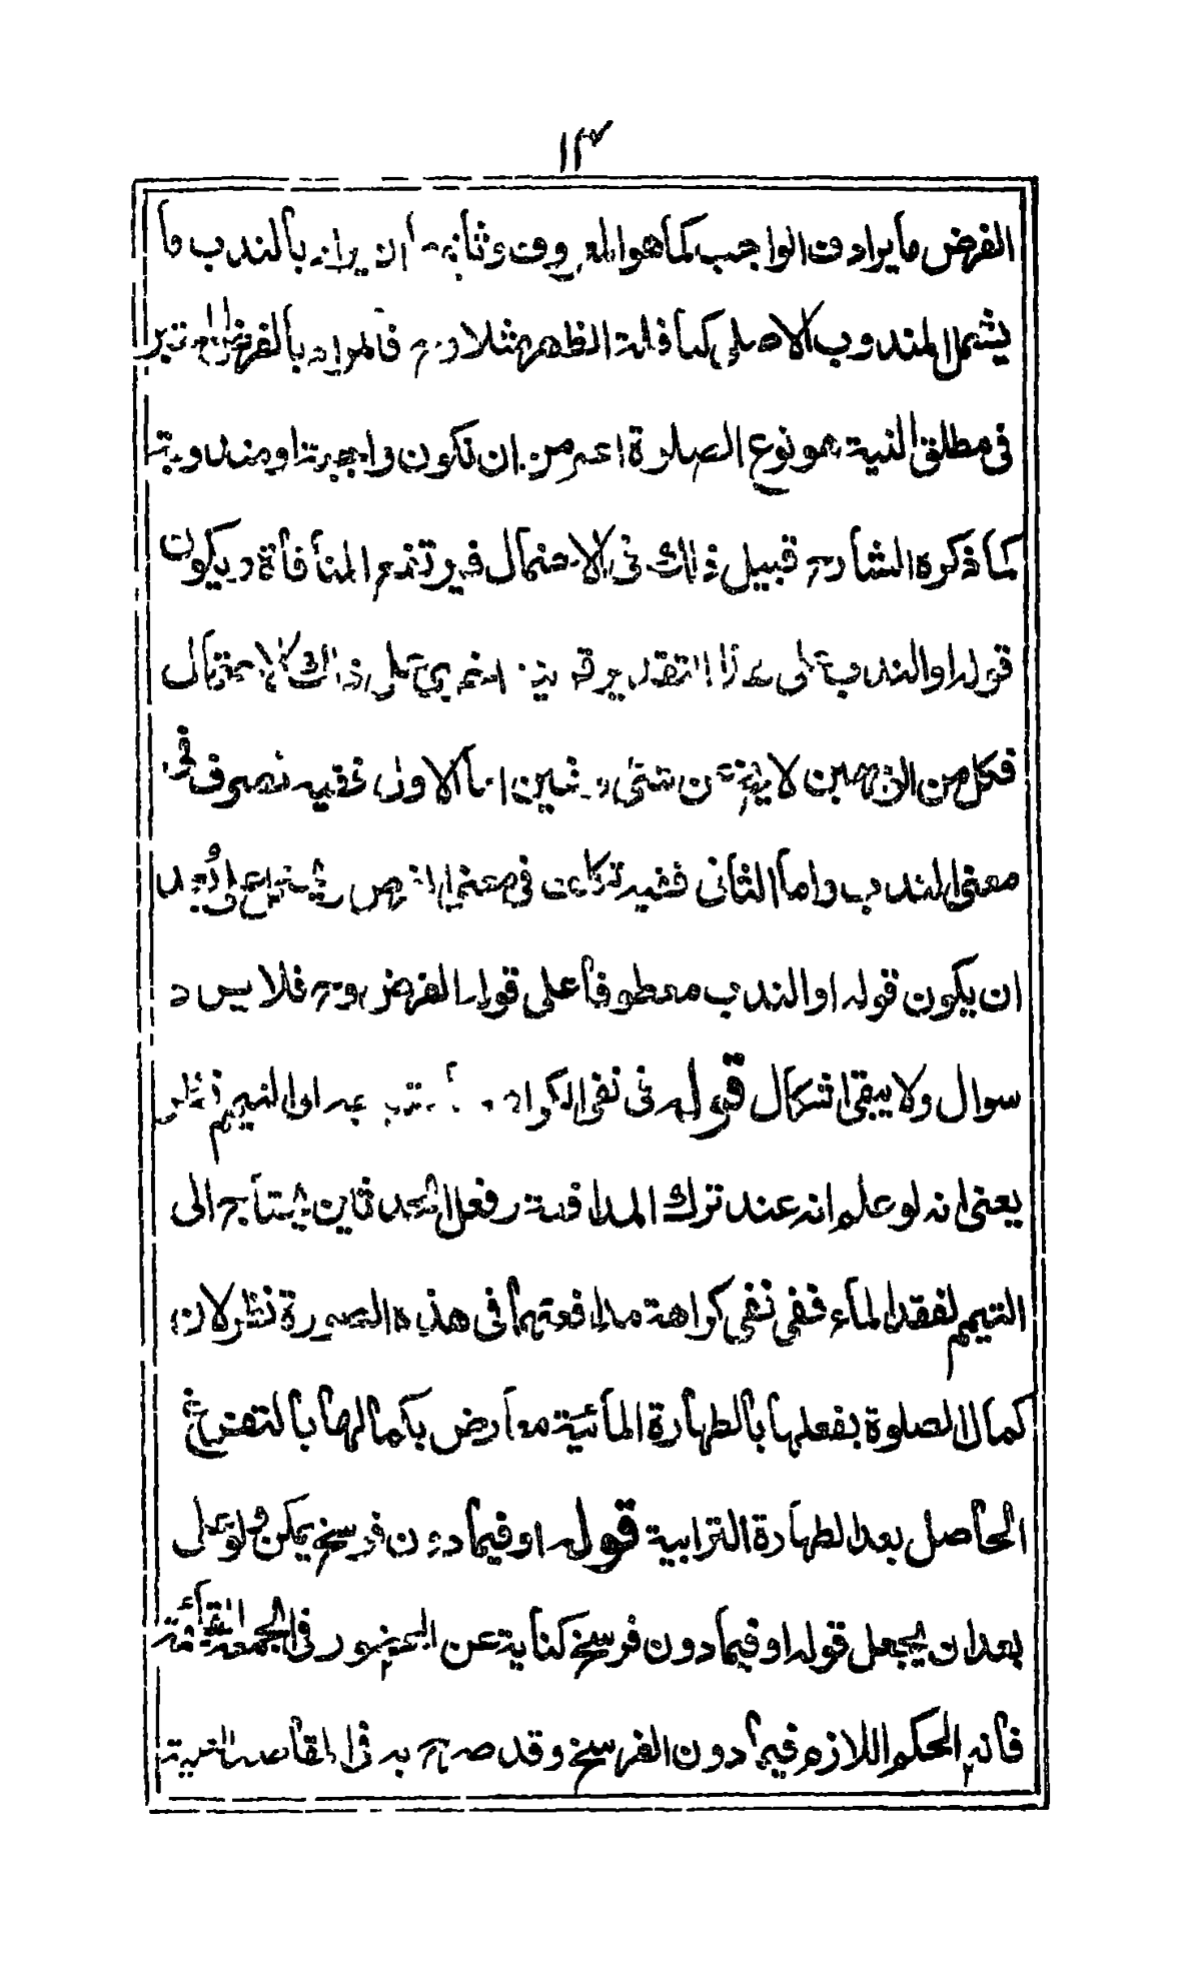 ١١٣
الفرض ما يرادف الواجب كما هو المعروف وثانيهما ان يراد بالندب ما
يشمل المندوب الاصلي كنافلة الظهر مثلا وح فالمراد بالفرض
في مطلق النية هو نوع الصلوة اعم من ان تكون واجبة او مندوبة
كما ذكره الشارح قبيل ذلك في الاحتمال فيرتفع المنافاة ويكون
قوله او الندب على هذا التقدير قرينة اخرى على ذلك الاحتمال
فكل من الوجهين لا يخ عن شئ اما الاول ففيه تصرف في
معنى الندب واما الثاني ففيه تكلف في معنى الفرض
ان يكون قوله او الندب معطوفا على قوله الفرض وح فلا يرد
سوال ولا يبقى اشكال قوله في نفى الكراهة باحتياجه الى التيمم نظر
يعنى انه لو علم انه عند ترك المدافعة وفعل الحدثين يحتاج الى
التيمم لفقد الماء ففي نفي كراهة مدافعتهما في هذه الصورة نظر لان
كمال الصلوة بفعلها بالطهارة المائية معارض بكمالها بالتفريغ
الحاصل بعد الطهارة الترابية قوله او فيما دون فرسخ يمكن ولو على
بعد ان يجعل قوله او فيما دون فرسخ كناية عن الحضور في الجمعة
فانه الحكم اللازم فيما دون الفرسخ وقد صرح به في المقاصد العلية